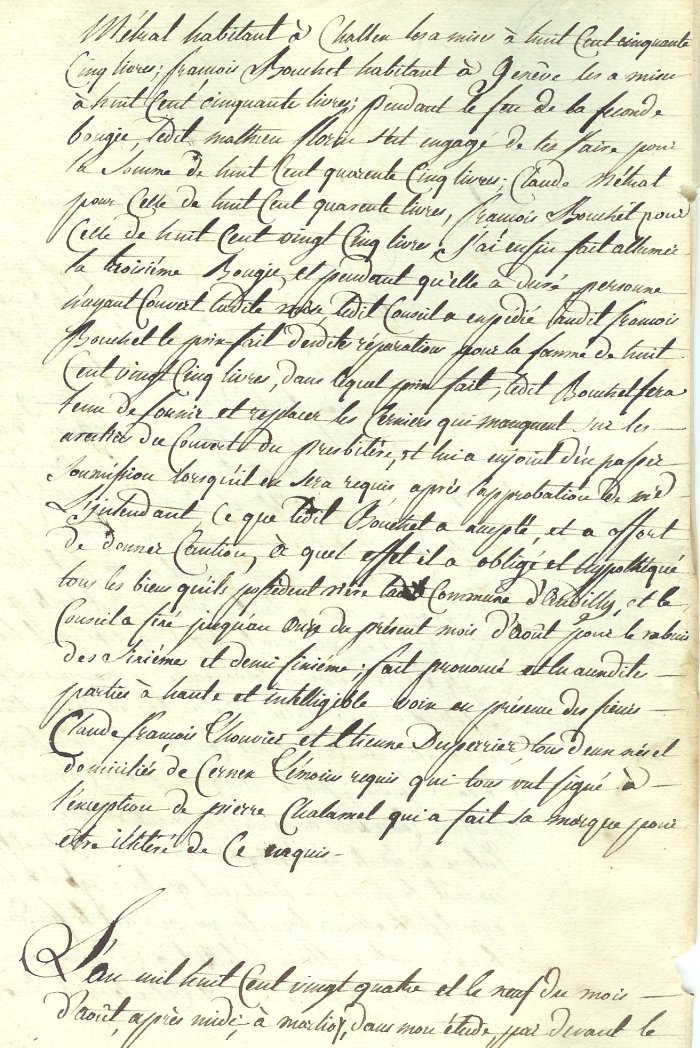 Métral habitant à Challex les a mises à huit Cent cinquante
Cinq livres; françois Bouchet habitant à Genève les a mises
à huit Cent cinquante livres; pendant le feu de la seconde
bougie, ledit mathieu florin s'est engagé de les faire pour
la Somme de huit Cent quarente Cinq livres; Claude Métral
pour Celle de huit Cent quarente livres, françois Bouchet pour
Celle de huit Cent vingt Cinq livres, J'ai enfin fait allumer
la troisième Bougie, et pendant qu'elle a duré personne
n'ayant Couvert ladite mise, ledit Conseil a expédié audit françois
Bouchet le prix-fait desdites réparations pour la somme de huit
Cent vingt Cinq livres, dans lequel prix fait, ledit Bouchet sera
tenu de fournir et replacer les Cerniers qui manquent sur les
arrêtes du Couvert du presbitère, et lui a enjoint d'en passer
Soumission lorsqu'il en sera requis après l'approbation de
L'intendant, Ce que ledit Bouchet a accepté, et a offert
de donner Caution, à quel effet il a obligé et hypothéqué
tous les biens qu'ils possèdent rière la Commune d'Andilly, et le
Conseil a fixé jusqu'au onze du présent mois d'août pour le rabais
des Sixième et demi sixième; fait prononcé et lu auxdites
parties à haute et intelligible voix en présence des sieurs
Claude françois Chouvier et Etienne Duperrier tous deux nés et
domiciliés de Cernex témoins requis qui tous ont signé à
l'exception de pierre Chalamel qui a fait sa marque pour
etre illitéré de Ce requis.
L'an mil huit Cent vingt quatre et le neuf du mois
d'août, après midi, à marlioz, dans mon étude par devant le